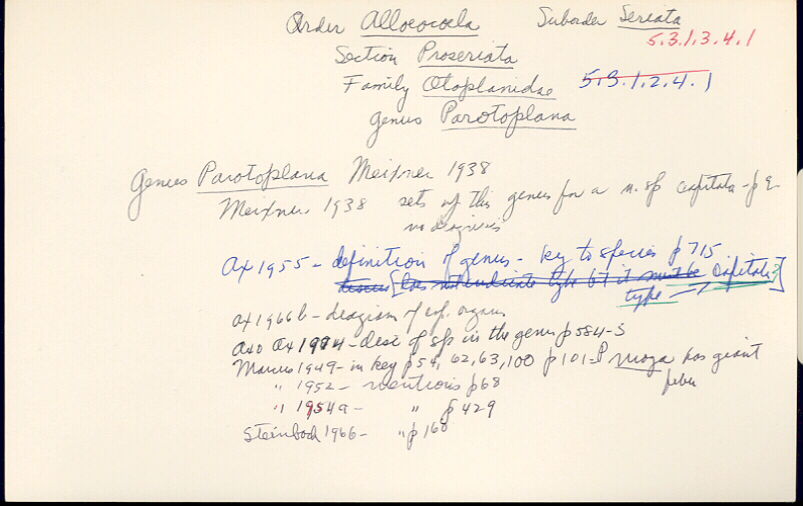 Order Alloeocoela Suborder Seriata
5.3.1.3.4.1
Section Proseriata
Family Otoplanidae 5.3.1.2.4.1
genus Parotoplana
Genus Parotoplana Meixner 1938
Meixner 1938 sets up this genus for a n. sp capitata - p 9
no diagnosis
Ax 1955 - definition of genus - key to species p 715
[Does not indicate type but it must be capitata?]
type
Ax 1966b - diagram of cop. organs
Ax & Ax 1974 - desc of sp in the genus p 584-5
Marcus 1949 - in key p 59, 62, 63, 100 p 101 = P. moya has giant
" 1952 - mentions p 68
" 1954a - " p 429
Steinbock 1966 - " p 160